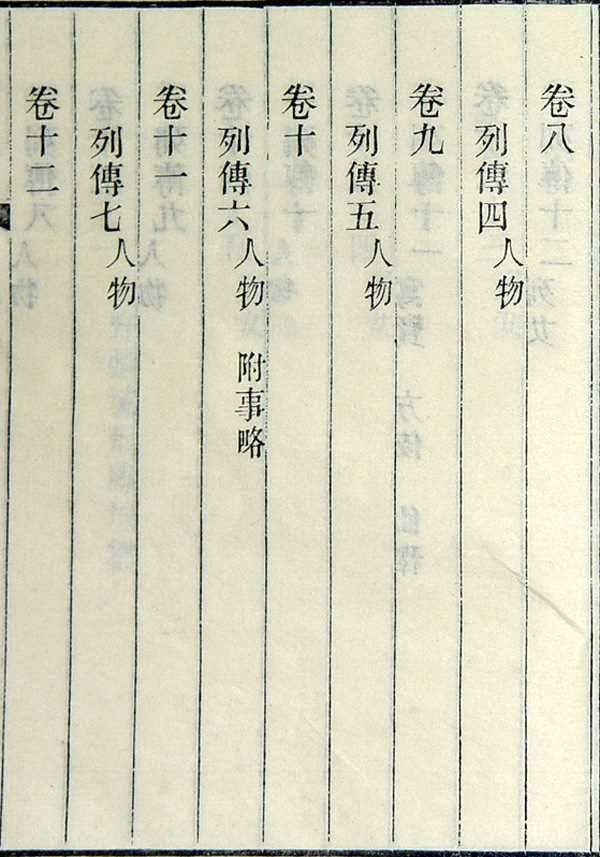 卷八
列傳四人物
卷九
列傳五人物
卷十
列傳六人物 附事略
卷十一
列傳七人物
卷十二